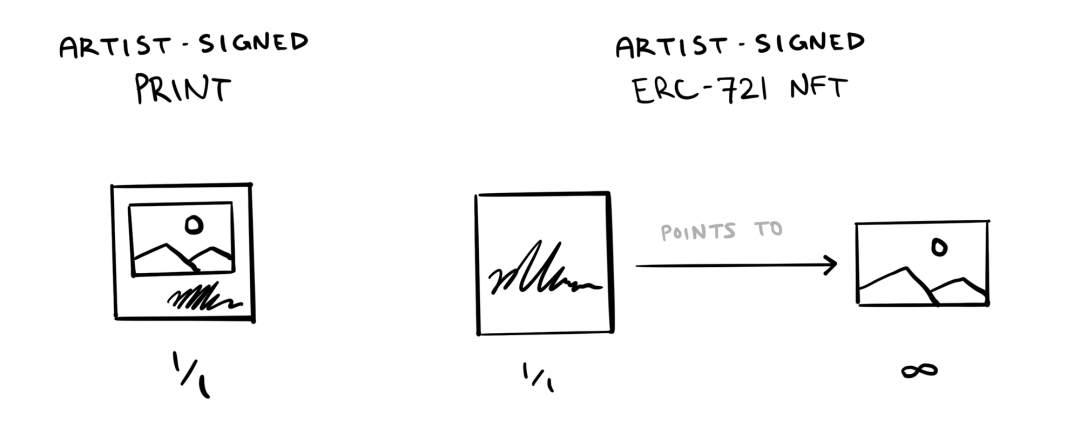 ARTIST-SIGNED
PRINT
ARTIST-SIGNED
ERC-721 NFT
POINTS TO
1/1
1/1
∞